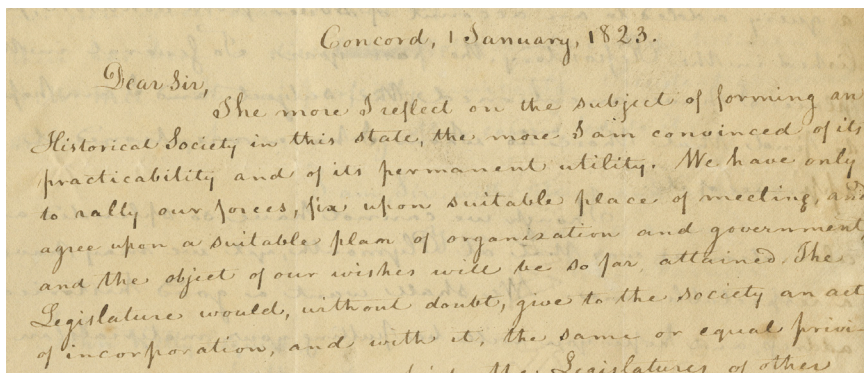 Concord, 1 January, 1823.
Dear Sir,
The more I reflect on the subject of forming an
Historical Society in this state, the more I am convinced of its
practicability and of its permanent utility. We have only
to rally our forces, fix upon suitable place of meeting, and
agree upon a suitable plan of organization and government,
and the object of our wishes will be so far attained. The
Legislature would, without doubt, give to the society an act
of incorporation, and with it, the same or equal privi-
the Legislatures of other